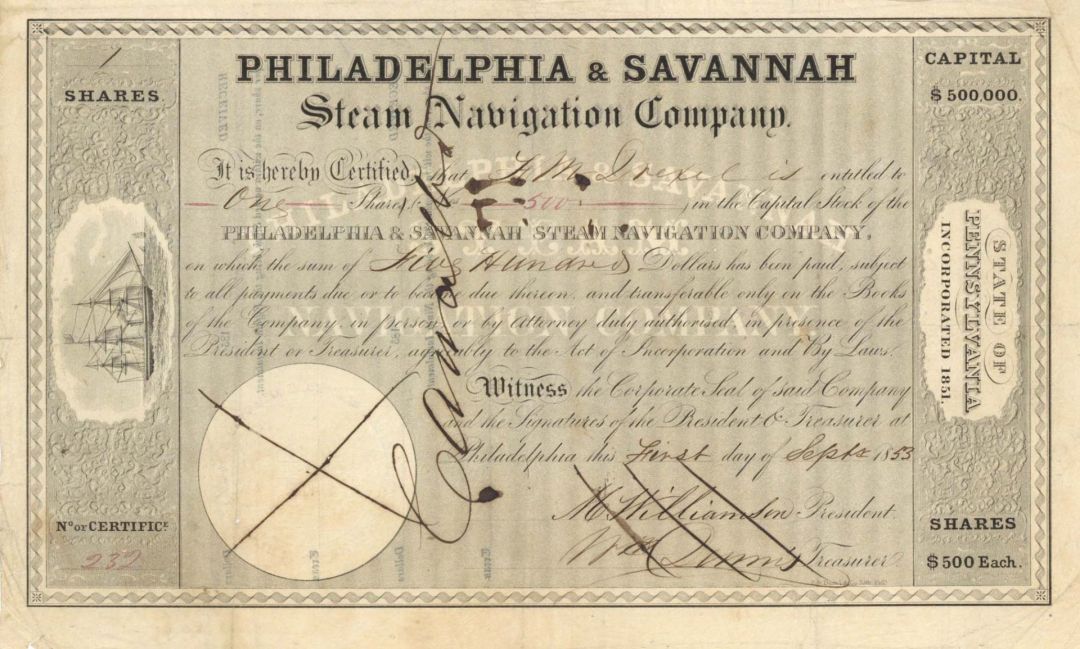 1
SHARES.
PHILADELPHIA & SAVANNAH
Steam Navigation Company.
It is hereby Certified, that F. M. Drexel is entitled to
One Shares $ 500 in the Capital Stock of the
PHILADELPHIA & SAVANNAH STEAM NAVIGATION COMPANY,
on which the sum of Five Hundred Dollars has been paid, subject
to all payments due or to become due thereon, and transferable only on the Books
of the Company, in person, or by Attorney duly authorised, in presence of the
President or Treasurer, agreeably to the Act of Incorporation and By Laws.
Witness the Corporate Seal of said Company
and the Signatures of the President & Treasurer at
Philadelphia this First day of Septr 1853
M Williamson President.
Wm Treasurer
Cancelled
No. OF CERTIFICE.
232
CAPITAL
$500,000.
STATE OF
PENNSYLVANIA
INCORPORATED 1851.
SHARES
$500 Each.